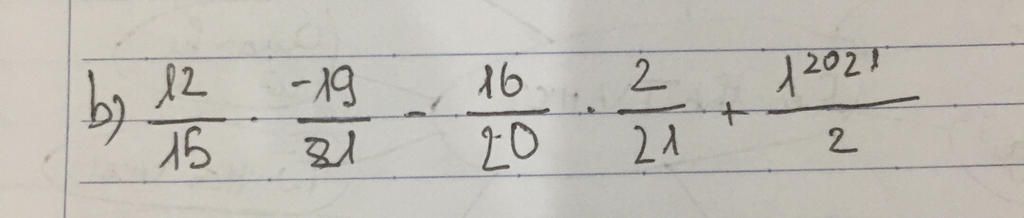 b) \frac{12}{15} . \frac{-19}{21} - \frac{16}{20} . \frac{2}{21} + \frac{1^{2021}}{2}